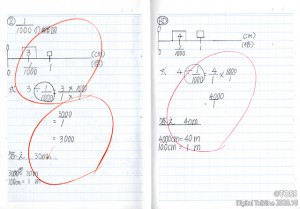 ② 1/1000の縮図
0 3 □ (cm)
1 1000 (倍)
式 3 ÷ 1/1000 = 3/1 × 1000/1
= 3000/1
= 3000
答え 30m
3000cm = 30m
100cm = 1m
0 4 □ (cm)
1 1000 (倍)
式 4 ÷ 1/1000 = 4/1 × 1000/1
4000/1
答え 40m
4000cm = 40m
100cm = 1m
©TOSS
Digital Talkline 2020.10